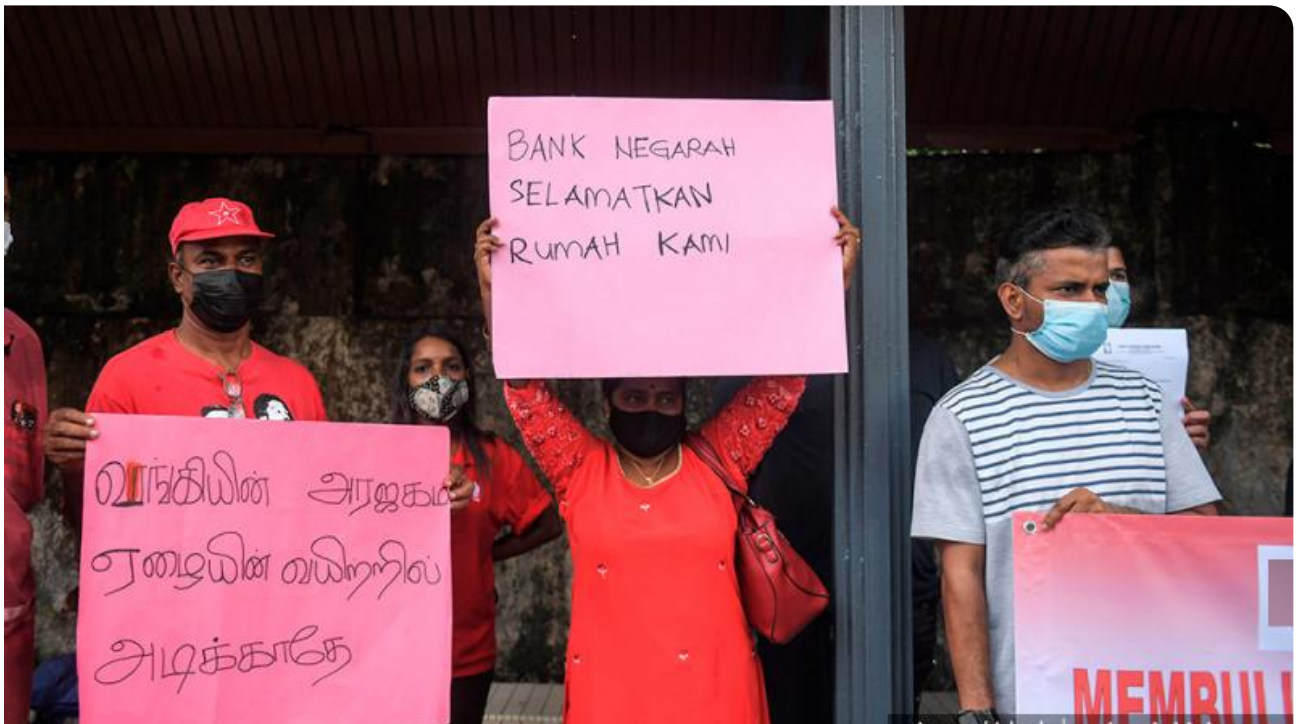 BANK NEGARAH
SELAMATKAN
RUMAH KAMI
வங்கியின் அரஜகம
ஏழையின் வயிறறில்
அடிக்காதே